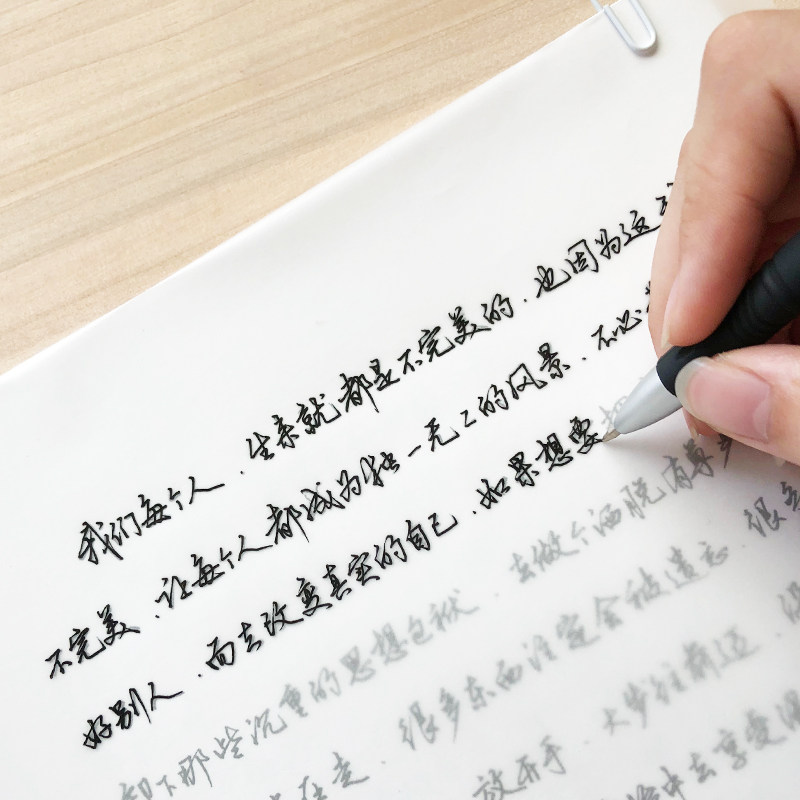 我们每个人，生来就都是不完美的，也因为这
不完美，让每个人都成为独一无二的风景，不必
好别人，而去改变真实的自己，如果想要
卸下那些沉重的思想包袱，去做个洒脱有尊严
在走，很多东西注定会被遗忘，很多
放开手，大步往前迈，没
中去享受